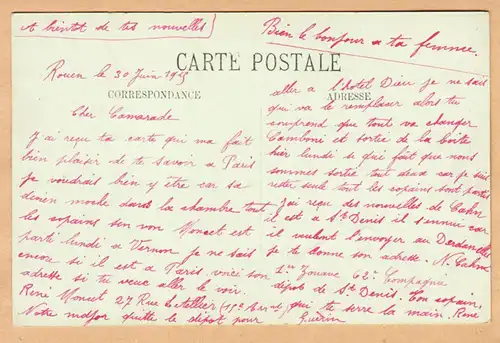 A bientot de tes nouvelles
Bien le bonjour a ta femme.
CARTE POSTALE
Rouen le 30 Juin 19
CORRESPONDANCE
Cher Camarade
J'ai reçu ta carte qui ma fait
bien plaisir de te savoir a Paris
je voudrais bien y être car sa
devien moche dans la chambre tout
les copains son von Moncet est
parti lundi a Vernon je ne sais
encore si il est a Paris, voici son
adresse si tu veux aller le voir.
René Moncet 27 Rue Letellier (15e Arr.t)
Notre major quitte le dépot pour
ADRESSE
aller a l'hotel Dieu je ne sais
qui va le remplacer alors tu
comprend que tout va changer
Cambone et sortie de la Boite
hier lundi si qui fait que nous
sommes sortie tout deux car je suis
rester seule tout les copains sont parties
J'ai reçu des nouvelles de Cahn
il est a St Denis il s'ennui car
il veulent l'envoyer au Dardanelles
je te donne son adresse. N. Cahn
1er Zouave 62e Compagnie
dépot de St Denis. Ton copain,
qui te serre la main. René
Guérin